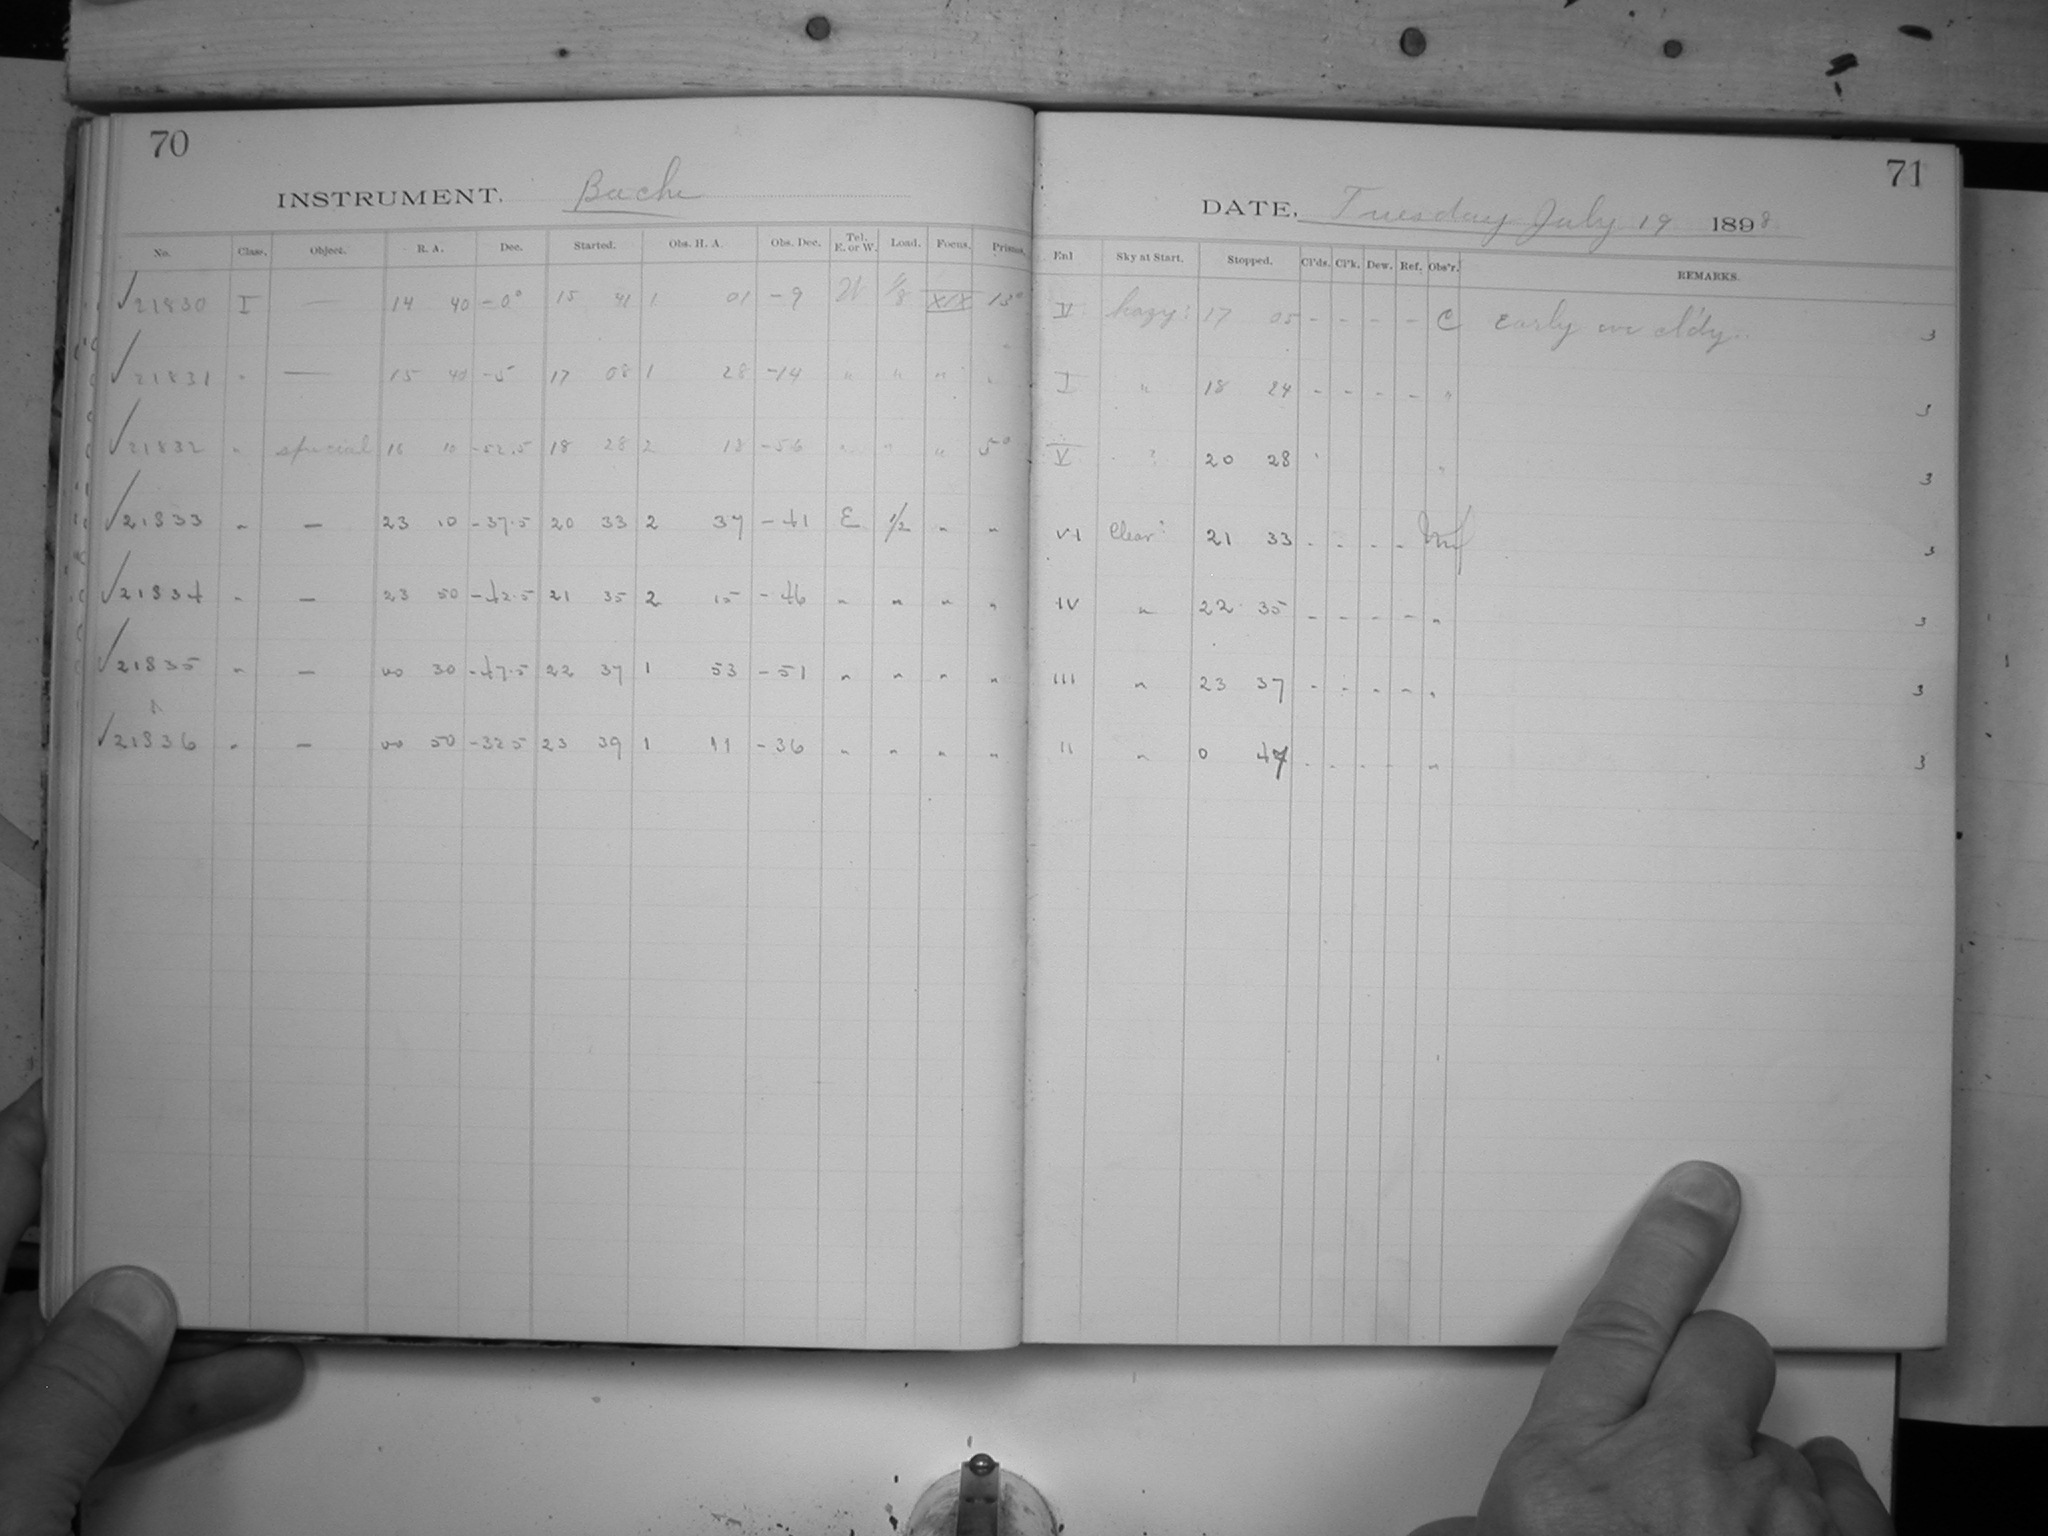 70
INSTRUMENT. Bache
No. Class. Object. R. A. Dec. Started. Obs. H. A. Obs. Dec. Tel. E. or W. Load. Focus. Prisms.
√21830 I — 14 40 -0° 15 41 1 01 -9 W XIX 13°
√21831 " — 15 40 -5 17 08 1 28 -14 " " " "
√21832 " special 16 10 -52.5 18 28 2 18 -56 " " " 5°
√21833 " — 23 10 -37.5 20 33 2 37 -41 E 1/2 " "
√21834 " — 23 50 -42.5 21 35 2 15 -46 " " " "
√21835 " — 00 30 -47.5 22 37 1 53 -51 " " " "
√21836 " — 00 50 -32.5 23 39 1 11 -36 " " " "
71
DATE, Tuesday July 19 1898
Enl Sky at Start. Stopped. Cl'ds. Cl'k. Dew. Ref. Obs'r. REMARKS.
hazy: 17 05 - - - - C Early eve cl'dy.. 3
I " 18 24 - - - - " 3
V 20 28 " 3
VI Clear: 21 33 - - - - 3
IV " 22 35 - - - - " 3
III " 23 37 - - - - " 3
II " 0 47 - - - - " 3